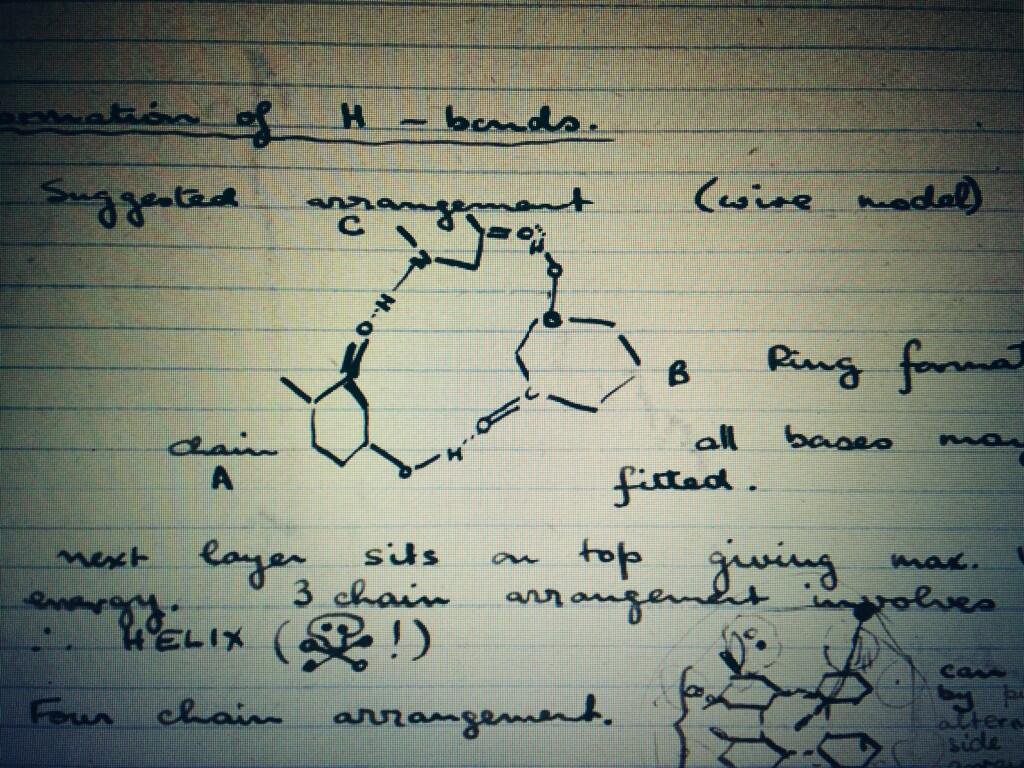 ormation of H - bonds.
Suggested arrangement (wire model)
C
=O
H
O
N
H
O
B
Ring format
C
O
H
chain
A
O
all bases may
fitted.
next layer sits on top giving max.
energy. 3 chain arrangement involves
∴ HELIX ( !)
Four chain arrangement.
can
by p
altern
side